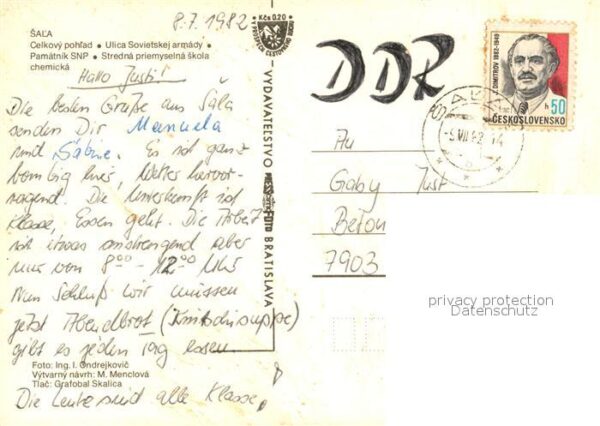 8.7.1982
ŠAĽA
Celkový pohľad • Ulica Sovietskej armády •
Pamätník SNP • Stredná priemyselná škola
chemická
Hallo Justi!
Die besten Grüße aus Šala
senden Dir Manuela
und Sabine. Es ist ganz
bombig hier, Wetter hervor-
ragend. Die Unterkunft ist
Klasse, Essen geht. Die Arbeit
ist etwas anstrengend aber
nur von 8⁰⁰ - 12⁰⁰ Uhr
Nun Schluß wir müssen
jetzt Abendbrot
gibt es jeden Tag essen.
Foto: Ing. I. Ondrejkovič
Výtvarný návrh: M. Menclová
Tlač: Grafobal Skalica
Die Leute sind alle Klasse,
Kčs 0,20
VYDAVATEĽSTVO
BRATISLAVA
DDR
DIMITROV 1882-1949
50 h
ČESKOSLOVENSKO
An
Gaby Just
7903
privacy protection
Datenschutz